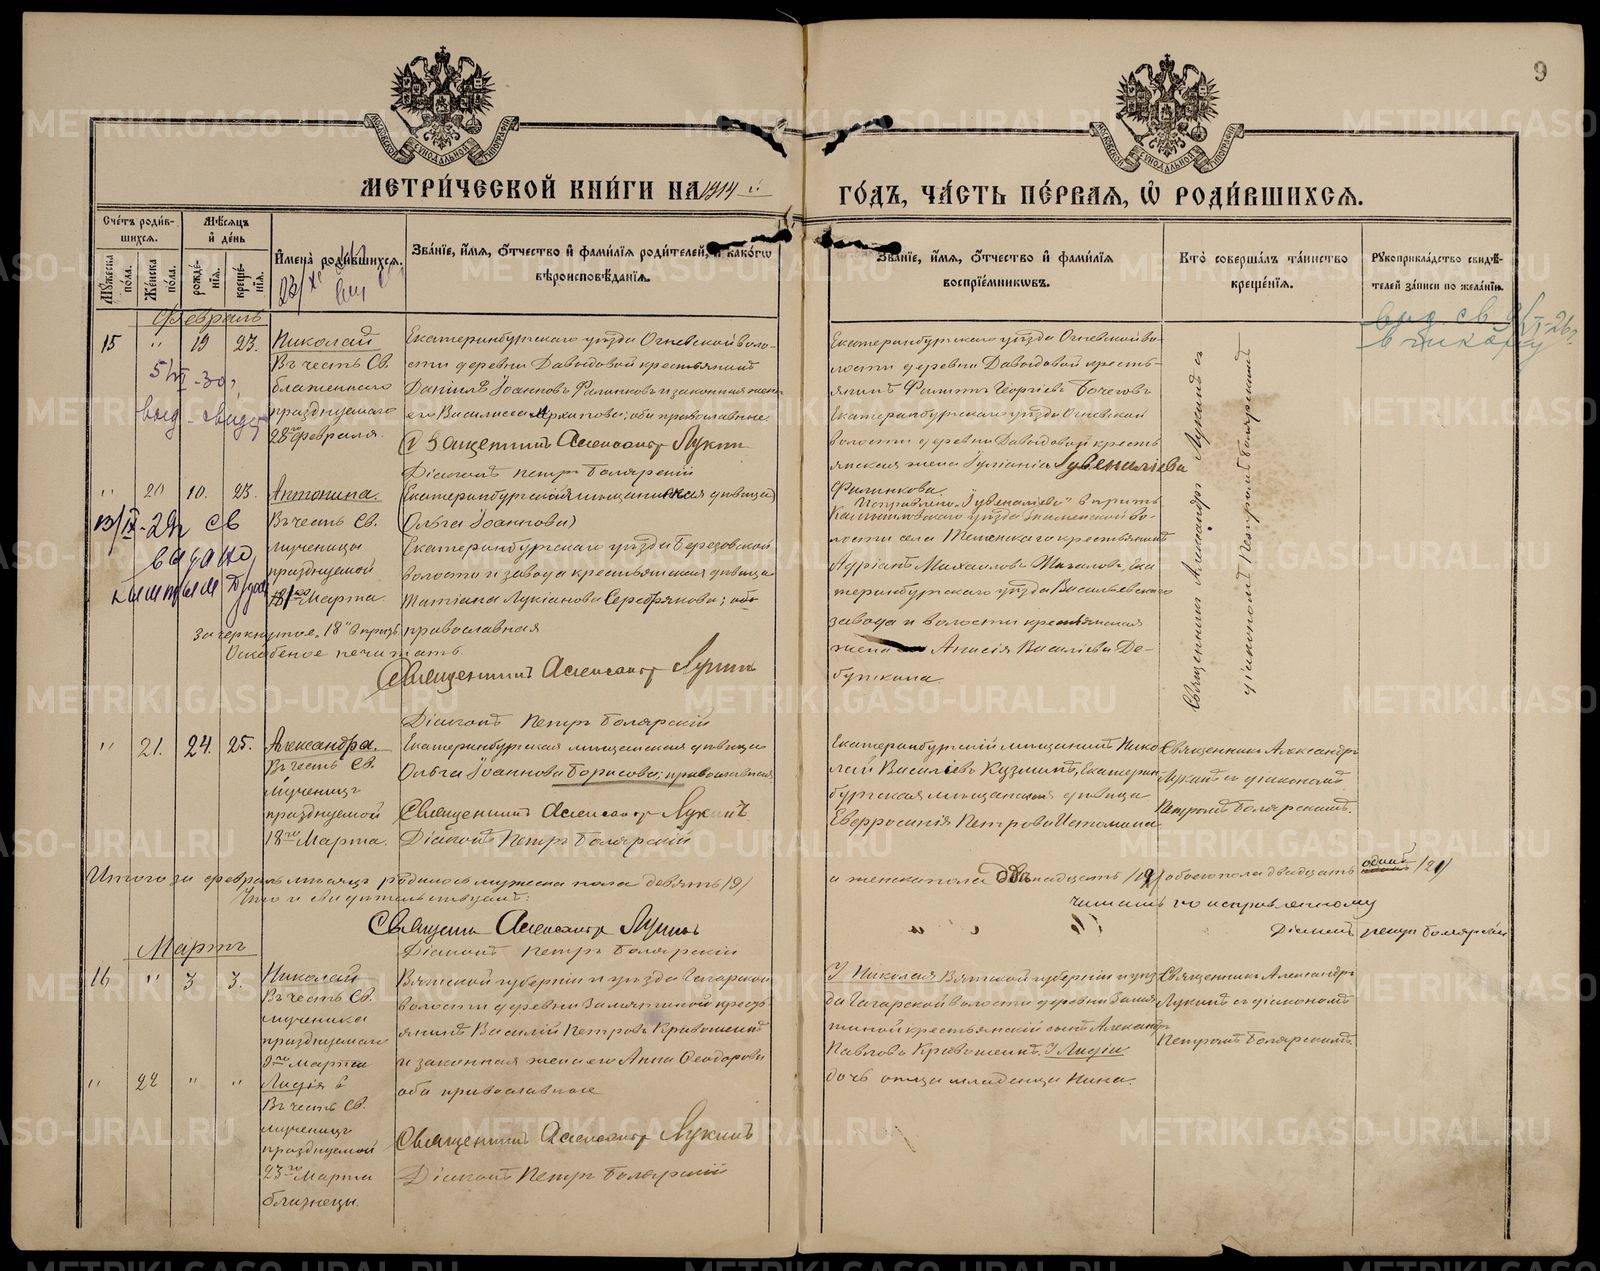 9
МЕТРИ́ЧЕСКОЙ КНИ́ГИ НА 1914 й
ГОДЪ, ЧА́СТЬ ПЕ́РВАЯ, Ѽ РОДИ́ВШИХСЯ.
Сче́тъ роди́в-
шихся.
Мѣ́сяцъ
и́ де́нь
Му́жеска по́ла.
Же́нска по́ла.
рожде́-
нїя.
креще́-
нїя.
И҆мена̀ роди́вшихся.
Зва́нїе, и҆́мя, ѻ҆́тчество и҆ фами́лїя роди́телей, и҆ како́гѡ
вѣроисповѣ́данїя.
Зва́нїе, и҆́мя, ѻ҆́тчество и҆ фами́лїя
воспрїе́мниковъ.
Кто̀ соверша́лъ та́инство
креще́нїя.
Рꙋкоприкла́дство свидѣ́-
телей за́писи по жела́нїю.
Февраль
15 " 19 23. Николай
Въ честь Св.
блаженнаго
празднуемаго
28го февраля.
Екатеринбургскаго уѣзда Огневской воло-
сти деревни Давыдовой крестьянинъ
Даніилъ Іоанновъ Фалинковъ и законная жена
его Василисса Архипова; оба православные
Священникъ Александръ Лукинъ
Діаконъ Петръ Боляр­скій
Екатеринбургскаго уѣзда Огневской во-
лости деревни Давыдовой кресть-
янинъ Филиппъ Георгіевъ Бочеговъ
Екатеринбургскаго уѣзда Огневской
волости деревни Давыдовой кресть
янская жена Іуліанія Іувеналіева
Фалинкова.
Исправлено „Іувеналіева"
Священникъ Александръ Лукинъ съ
діакономъ Петромъ Болярскимъ
" 20 10. 23. Антонина.
Въ честь Св.
мученицы
празднуемой
1го Марта.
зачеркнутое „18"
не читать.
Екатеринбургская мѣщанская дѣвица
Ольга Іоаннова)
Екатеринбургскаго уѣзда Березовской
волости и завода крестьянская дѣвица
Татіана Лукіанова Серебрякова; оба
православная
Священникъ Александръ Лукинъ
Діаконъ Петръ Болярскій
Камышловскаго уѣзда Знаменской во-
лости села
Адріанъ Михаиловъ Михалевъ, Ека
теринбургскаго уѣзда Васильевскаго
завода и волости крестьянская
жена Анисія Василіева Де-
бушкина.
" 21. 24. 25. Александра.
Въ честь Св.
мученицъ
празднуемой
18го Марта.
Екатеринбургская мѣщанская дѣвица
Ольга Іоаннова Борисова; православная
Священникъ Александръ Лукинъ
Діаконъ Петръ Болярскій
Екатеринбургскій мѣщанинъ Нико
лай Василіевъ Кузминъ, Екатерин
бургская мѣщанская дѣвица
Евфросинія Петрова Истомина
Священникъ Александръ
Лукинъ съ діакономъ
Петромъ Болярскимъ.
Итого за февраль мѣсяцъ родилось мужеска пола девять /9/
а женска пола двѣнадцать /12/ обоего пола двадцать одинъ /21/
Что и свидѣтельствуемъ:
читать по исправленному
Священникъ Александръ Лукинъ
Діаконъ Петръ Болярскій
Діаконъ Петръ Болярскій
Мартъ
16 " 3 3. Николай
Въ честь Св.
мученика
празднуемаго
9го Марта
Вятской губерніи и уѣзда Гагарской
волости деревни Замятиной кресть
янинъ Василій Петровъ Кривошеинъ
и законная жена его Анна Ѳеодорова
оба православные
У Николая Вятской губерніи и уѣз
да Гагарской волости деревни Замя
тиной крестьянскій сынъ Александръ
Павловъ Кривошеинъ. У Лидіи
дочь отца младенца Нина.
Священникъ Александръ
Лукинъ съ діакономъ
Петромъ Болярскимъ.
" 22 " " Лидія
Въ честь Св.
мученицъ
празднуемой
23го Марта
близнецы.
Священникъ Александръ Лукинъ
Діаконъ Петръ Болярскій
METRIKI.GASO-URAL.RU